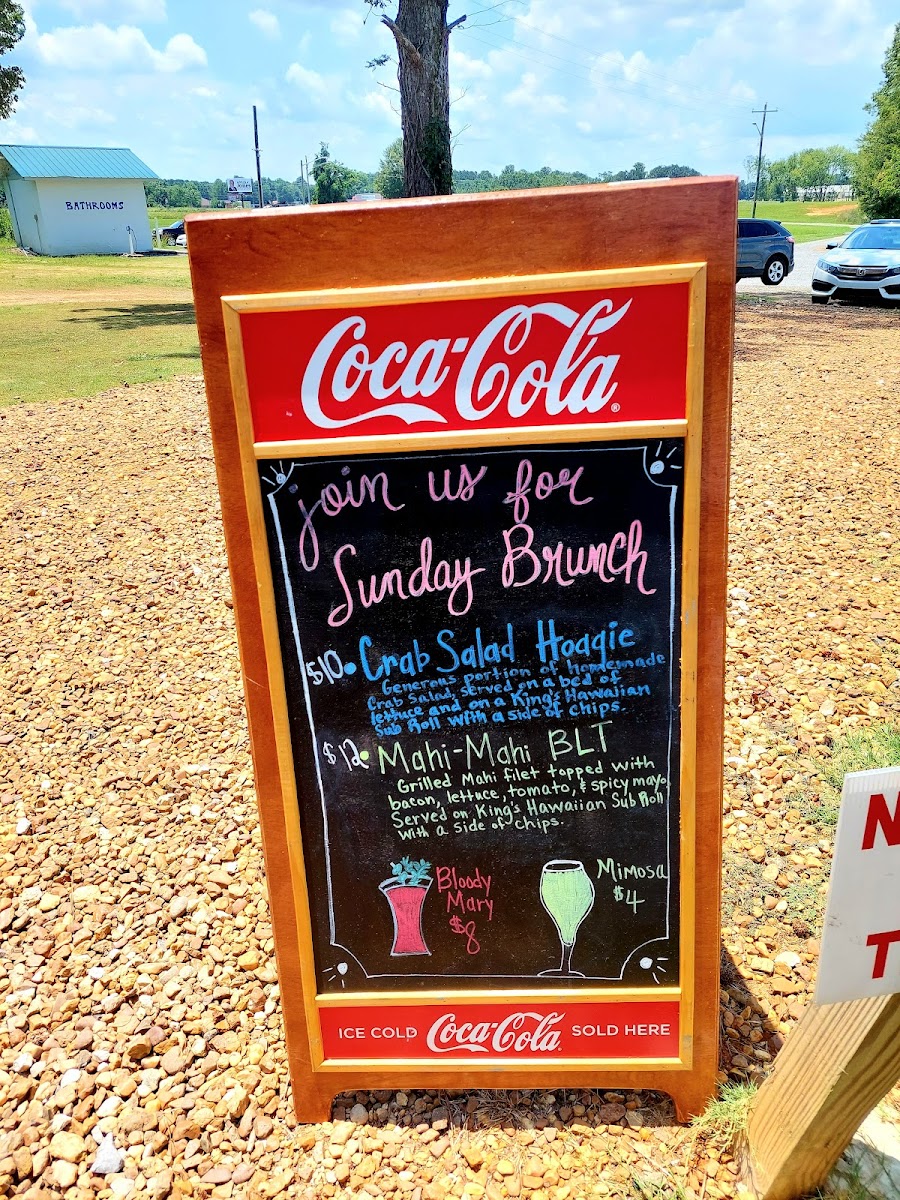 BATHROOMS
Coca-Cola®
join us for
Sunday Brunch
$10 • Crab Salad Hoagie
Generous portion of homemade
Crab salad, served on a bed of
lettuce and on a King's Hawaiian
Sub Roll with a side of chips.
$12 • Mahi-Mahi BLT
Grilled Mahi filet topped with
bacon, lettuce, tomato, & spicy mayo.
Served on King's Hawaiian Sub Roll
with a side of chips.
Bloody
Mary
$8
Mimosa
$4
ICE COLD Coca-Cola SOLD HERE
N
T